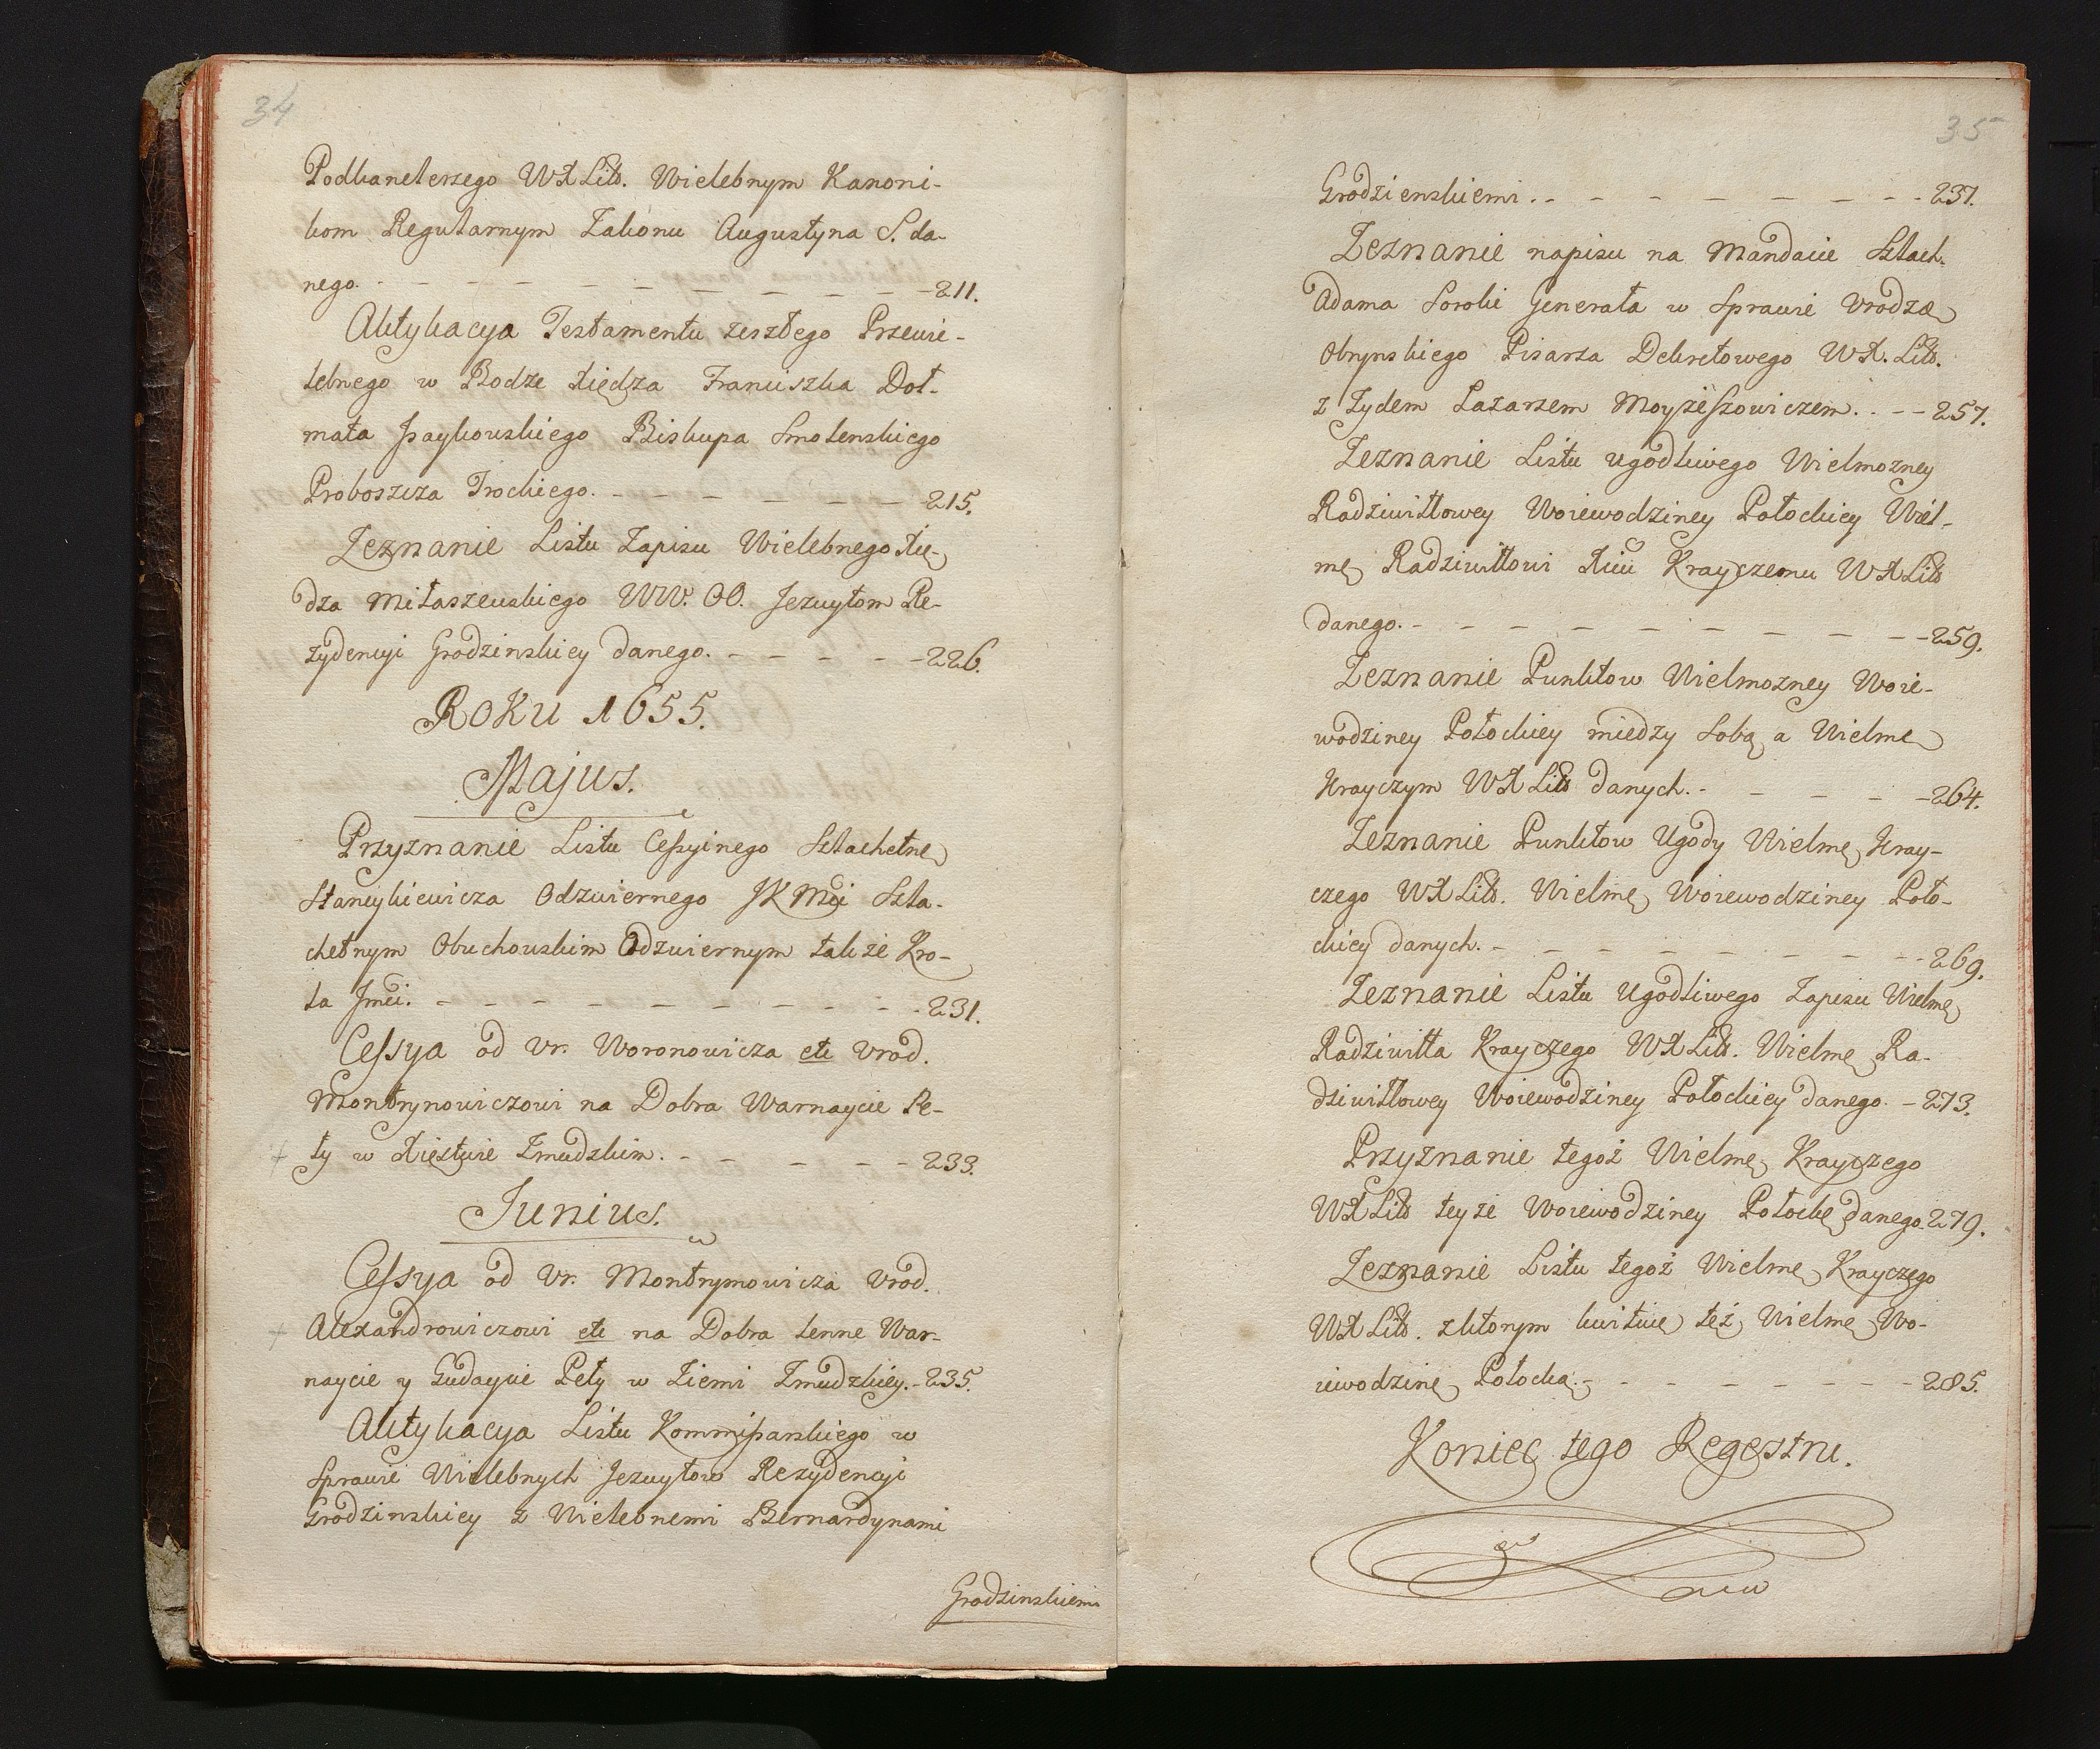 34
Podkanclerzego WXLitt. Wielebnym Kanoni-
kom Regularnym Zakonu Augustyna S. da-
nego. - - - - - - - - - 211.
Aktykacya Testamentu zeszłego Przewie-
lebnego w Bodze Xiędza Franciszka Doł-
mata Isaykowskiego Biskupa Smolenskiego
Proboszcza Trockiego. - - - - - - 215.
Zeznanie Listu Zapisu Wielebnego Xię-
dza Miłaszewskiego WW. OO. Jezuytom Re-
zydencyi Grodzinskiey danego. - - - - 226.
Roku 1655.
Majus.
Przyznanie Listu Cessyinego Szlachetne
Stancykiewicza Odzwiernego JKMci Szla-
chetnym Obuchowskim Odzwiernym takze Kro-
la Jmci. - - - - - - - - 231.
Cessya od Ur. Woronowicza etc Urod.
Montrymowiczowi na Dobra Warnaycie Pe-
ły w Xięstwie Zmudzkim. - - - - - 233.
Junius.
Cessya od Ur. Montrymowicza Urod.
Alexandrowiczowi etc na Dobra lenne War-
naycie y Gudaycie Peły w Ziemi Zmudzkiey. - 235.
Aktykacya Listu Kommissarskiego w
Sprawie Wielebnych Jezuytow Rezydencyi
Grodzinskiey z Wielebnemi Bernardynami
Grodzinskiemi
35
Grodzienskiemi. - - - - - - - - 237.
Zeznanie napisu na Mandacie Szlach.
Adama Soroki Generała w Sprawie Urodze
Obrynskiego Pisarza Dekretowego WX. Litt.
z Zydem Lazarzem Moyżeszowiczem. - - - 257.
Zeznanie Listu ugodliwego Wielmozney
Radziwiłłowey Woiewodziney Połockiey Wiel-
me Radziwiłłowi Xciu Krayczemu WXLitt
danego. - - - - - - - - - 259.
Zeznanie Punktow Wielmozney Woie-
wodziney Połockiey miedzy Sobą a Wielme
Krayczym WXLitt danych. - - - - - 264.
Zeznanie Punktow Ugody Wielme Kray-
czego WXLitt. Wielme Woiewodziney Poło-
ckiey danych. - - - - - - - - 269.
Zeznanie Listu Ugodliwego Zapisu Wielme
Radziwiłła Krayczego WXLitt. Wielme Ra-
dziwiłłowey Woiewodziney Połockiey danego. - 273.
Przyznanie tegoż Wielme Krayczego
WXLitt teyże Woiewodziney Połocke danego. 279.
Zeznanie Listu tegoż Wielme Krayczego
WXLitt. z ktorym kwituie też Wielme Wo-
iewodzine Połocka. - - - - - - - 285.
Koniec tego Regestru.